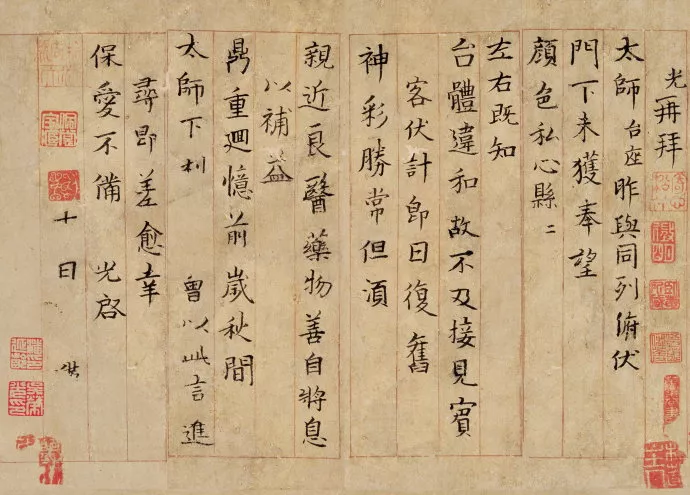 光再拜
太師台座昨與同列俯伏
門下未獲奉望
顏色私心縣〻
左右既知
台體違和故不及接見賓
客伏計即日復舊
神彩勝常但須
親近良醫藥物善自將息
以補益
鼎重迴憶前歲秋間
太師下利 曾以此言進
尋即差愈幸
保愛不備 光啓
十日